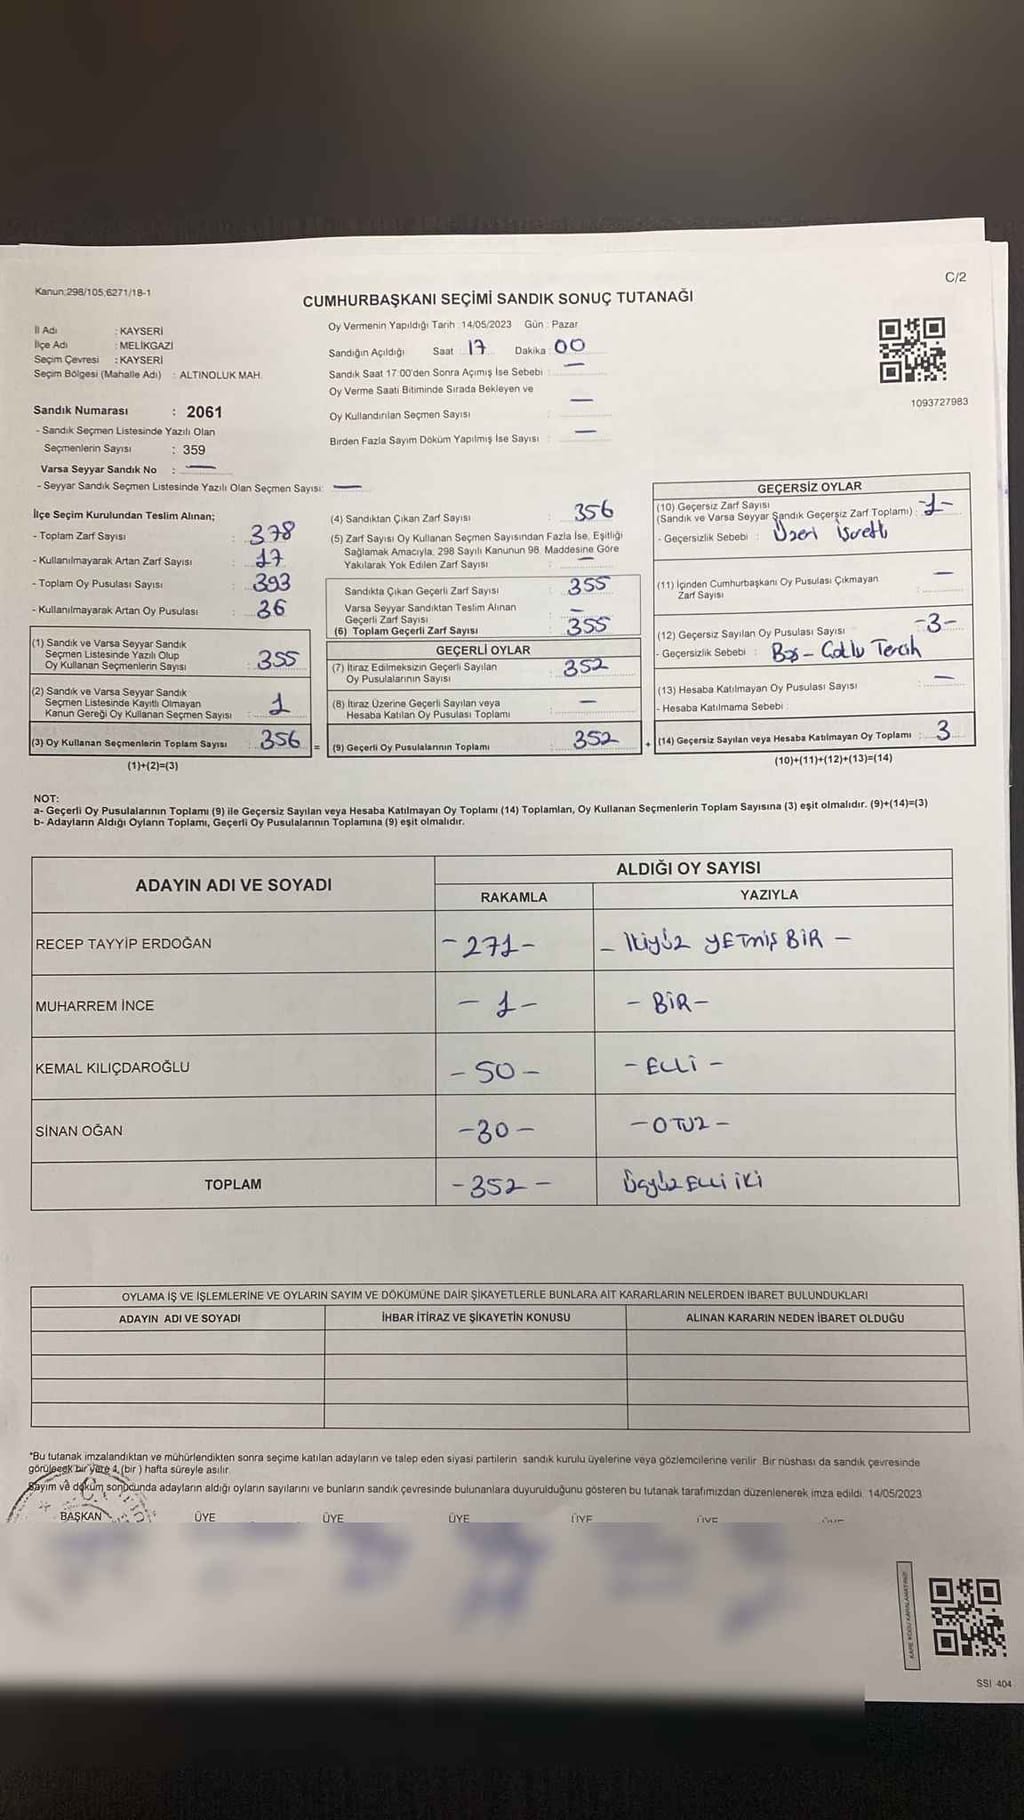 C/2
Kanun;298/105,6271/18-1
CUMHURBAŞKANI SEÇİMİ SANDIK SONUÇ TUTANAĞI
İl Adı : KAYSERİ
İlçe Adı : MELİKGAZİ
Seçim Çevresi : KAYSERİ
Seçim Bölgesi (Mahalle Adı) : ALTINOLUK MAH.
Oy Vermenin Yapıldığı Tarih :14/05/2023 Gün : Pazar
Sandığın Açıldığı Saat 17 Dakika : 00
Sandık Saat 17:00'den Sonra Açımış İse Sebebi : —
Oy Verme Saati Bitiminde Sırada Bekleyen ve
Oy Kullandırılan Seçmen Sayısı : —
Birden Fazla Sayım Döküm Yapılmış İse Sayısı : —
1093727983
Sandık Numarası : 2061
- Sandık Seçmen Listesinde Yazılı Olan
Seçmenlerin Sayısı : 359
Varsa Seyyar Sandık No : —
- Seyyar Sandık Seçmen Listesinde Yazılı Olan Seçmen Sayısı: —
İlçe Seçim Kurulundan Teslim Alınan;
- Toplam Zarf Sayısı : 378
- Kullanılmayarak Artan Zarf Sayısı : 17
- Toplam Oy Pusulası Sayısı : 393
- Kullanılmayarak Artan Oy Pusulası : 36
(1) Sandık ve Varsa Seyyar Sandık
Seçmen Listesinde Yazılı Olup
Oy Kullanan Seçmenlerin Sayısı : 355
(2) Sandık ve Varsa Seyyar Sandık
Seçmen Listesinde Kayıtlı Olmayan
Kanun Gereği Oy Kullanan Seçmen Sayısı : 1
(3) Oy Kullanan Seçmenlerin Toplam Sayısı : 356 =
(1)+(2)=(3)
(4) Sandıktan Çıkan Zarf Sayısı : 356
(5) Zarf Sayısı Oy Kullanan Seçmen Sayısından Fazla İse, Eşitliği
Sağlamak Amacıyla, 298 Sayılı Kanunun 98. Maddesine Göre
Yakılarak Yok Edilen Zarf Sayısı : —
Sandıkta Çıkan Geçerli Zarf Sayısı : 355
Varsa Seyyar Sandıktan Teslim Alınan
Geçerli Zarf Sayısı : —
(6) Toplam Geçerli Zarf Sayısı : 355
GEÇERLİ OYLAR
(7) İtiraz Edilmeksizin Geçerli Sayılan
Oy Pusulalarının Sayısı : 352
(8) İtiraz Üzerine Geçerli Sayılan veya
Hesaba Katılan Oy Pusulası Toplamı : —
(9) Geçerli Oy Pusulalarının Toplamı : 352 +
GEÇERSİZ OYLAR
(10) Geçersiz Zarf Sayısı
(Sandık ve Varsa Seyyar Sandık Geçersiz Zarf Toplamı) : -1-
- Geçersizlik Sebebi : Üzeri İşaretli
(11) İçinden Cumhurbaşkanı Oy Pusulası Çıkmayan
Zarf Sayısı : —
(12) Geçersiz Sayılan Oy Pusulası Sayısı : -3-
- Geçersizlik Sebebi : Boş - Çoklu Tercih
(13) Hesaba Katılmayan Oy Pusulası Sayısı : —
- Hesaba Katılmama Sebebi :
(14) Geçersiz Sayılan veya Hesaba Katılmayan Oy Toplamı : 3
(10)+(11)+(12)+(13)=(14)
NOT:
a- Geçerli Oy Pusulalarının Toplamı (9) ile Geçersiz Sayılan veya Hesaba Katılmayan Oy Toplamı (14) Toplamları, Oy Kullanan Seçmenlerin Toplam Sayısına (3) eşit olmalıdır. (9)+(14)=(3)
b- Adayların Aldığı Oyların Toplamı, Geçerli Oy Pusulalarının Toplamına (9) eşit olmalıdır.
ADAYIN ADI VE SOYADI
ALDIĞI OY SAYISI
RAKAMLA YAZIYLA
RECEP TAYYİP ERDOĞAN -271- - İKİYÜZ YETMİŞ BİR -
MUHARREM İNCE - 1 - - BİR -
KEMAL KILIÇDAROĞLU - 50 - - ELLİ -
SİNAN OĞAN -30- - OTUZ -
TOPLAM -352- ÜçYüz ELLİ İKİ
OYLAMA İŞ VE İŞLEMLERİNE VE OYLARIN SAYIM VE DÖKÜMÜNE DAİR ŞİKAYETLERLE BUNLARA AİT KARARLARIN NELERDEN İBARET BULUNDUKLARI
ADAYIN ADI VE SOYADI İHBAR İTİRAZ VE ŞİKAYETİN KONUSU ALINAN KARARIN NEDEN İBARET OLDUĞU
*Bu tutanak imzalandıktan ve mühürlendikten sonra seçime katılan adayların ve talep eden siyasi partilerin sandık kurulu üyelerine veya gözlemcilerine verilir. Bir nüshası da sandık çevresinde
görülecek bir yere 1 (bir ) hafta süreyle asılır.
Sayım ve döküm sonucunda adayların aldığı oyların sayılarını ve bunların sandık çevresinde bulunanlara duyurulduğunu gösteren bu tutanak tarafımızdan düzenlenerek imza edildi. 14/05/2023
BAŞKAN ÜYE ÜYE ÜYE ÜYE ÜYE
KARE KODU KARALAMAYINIZ!
SSI 404